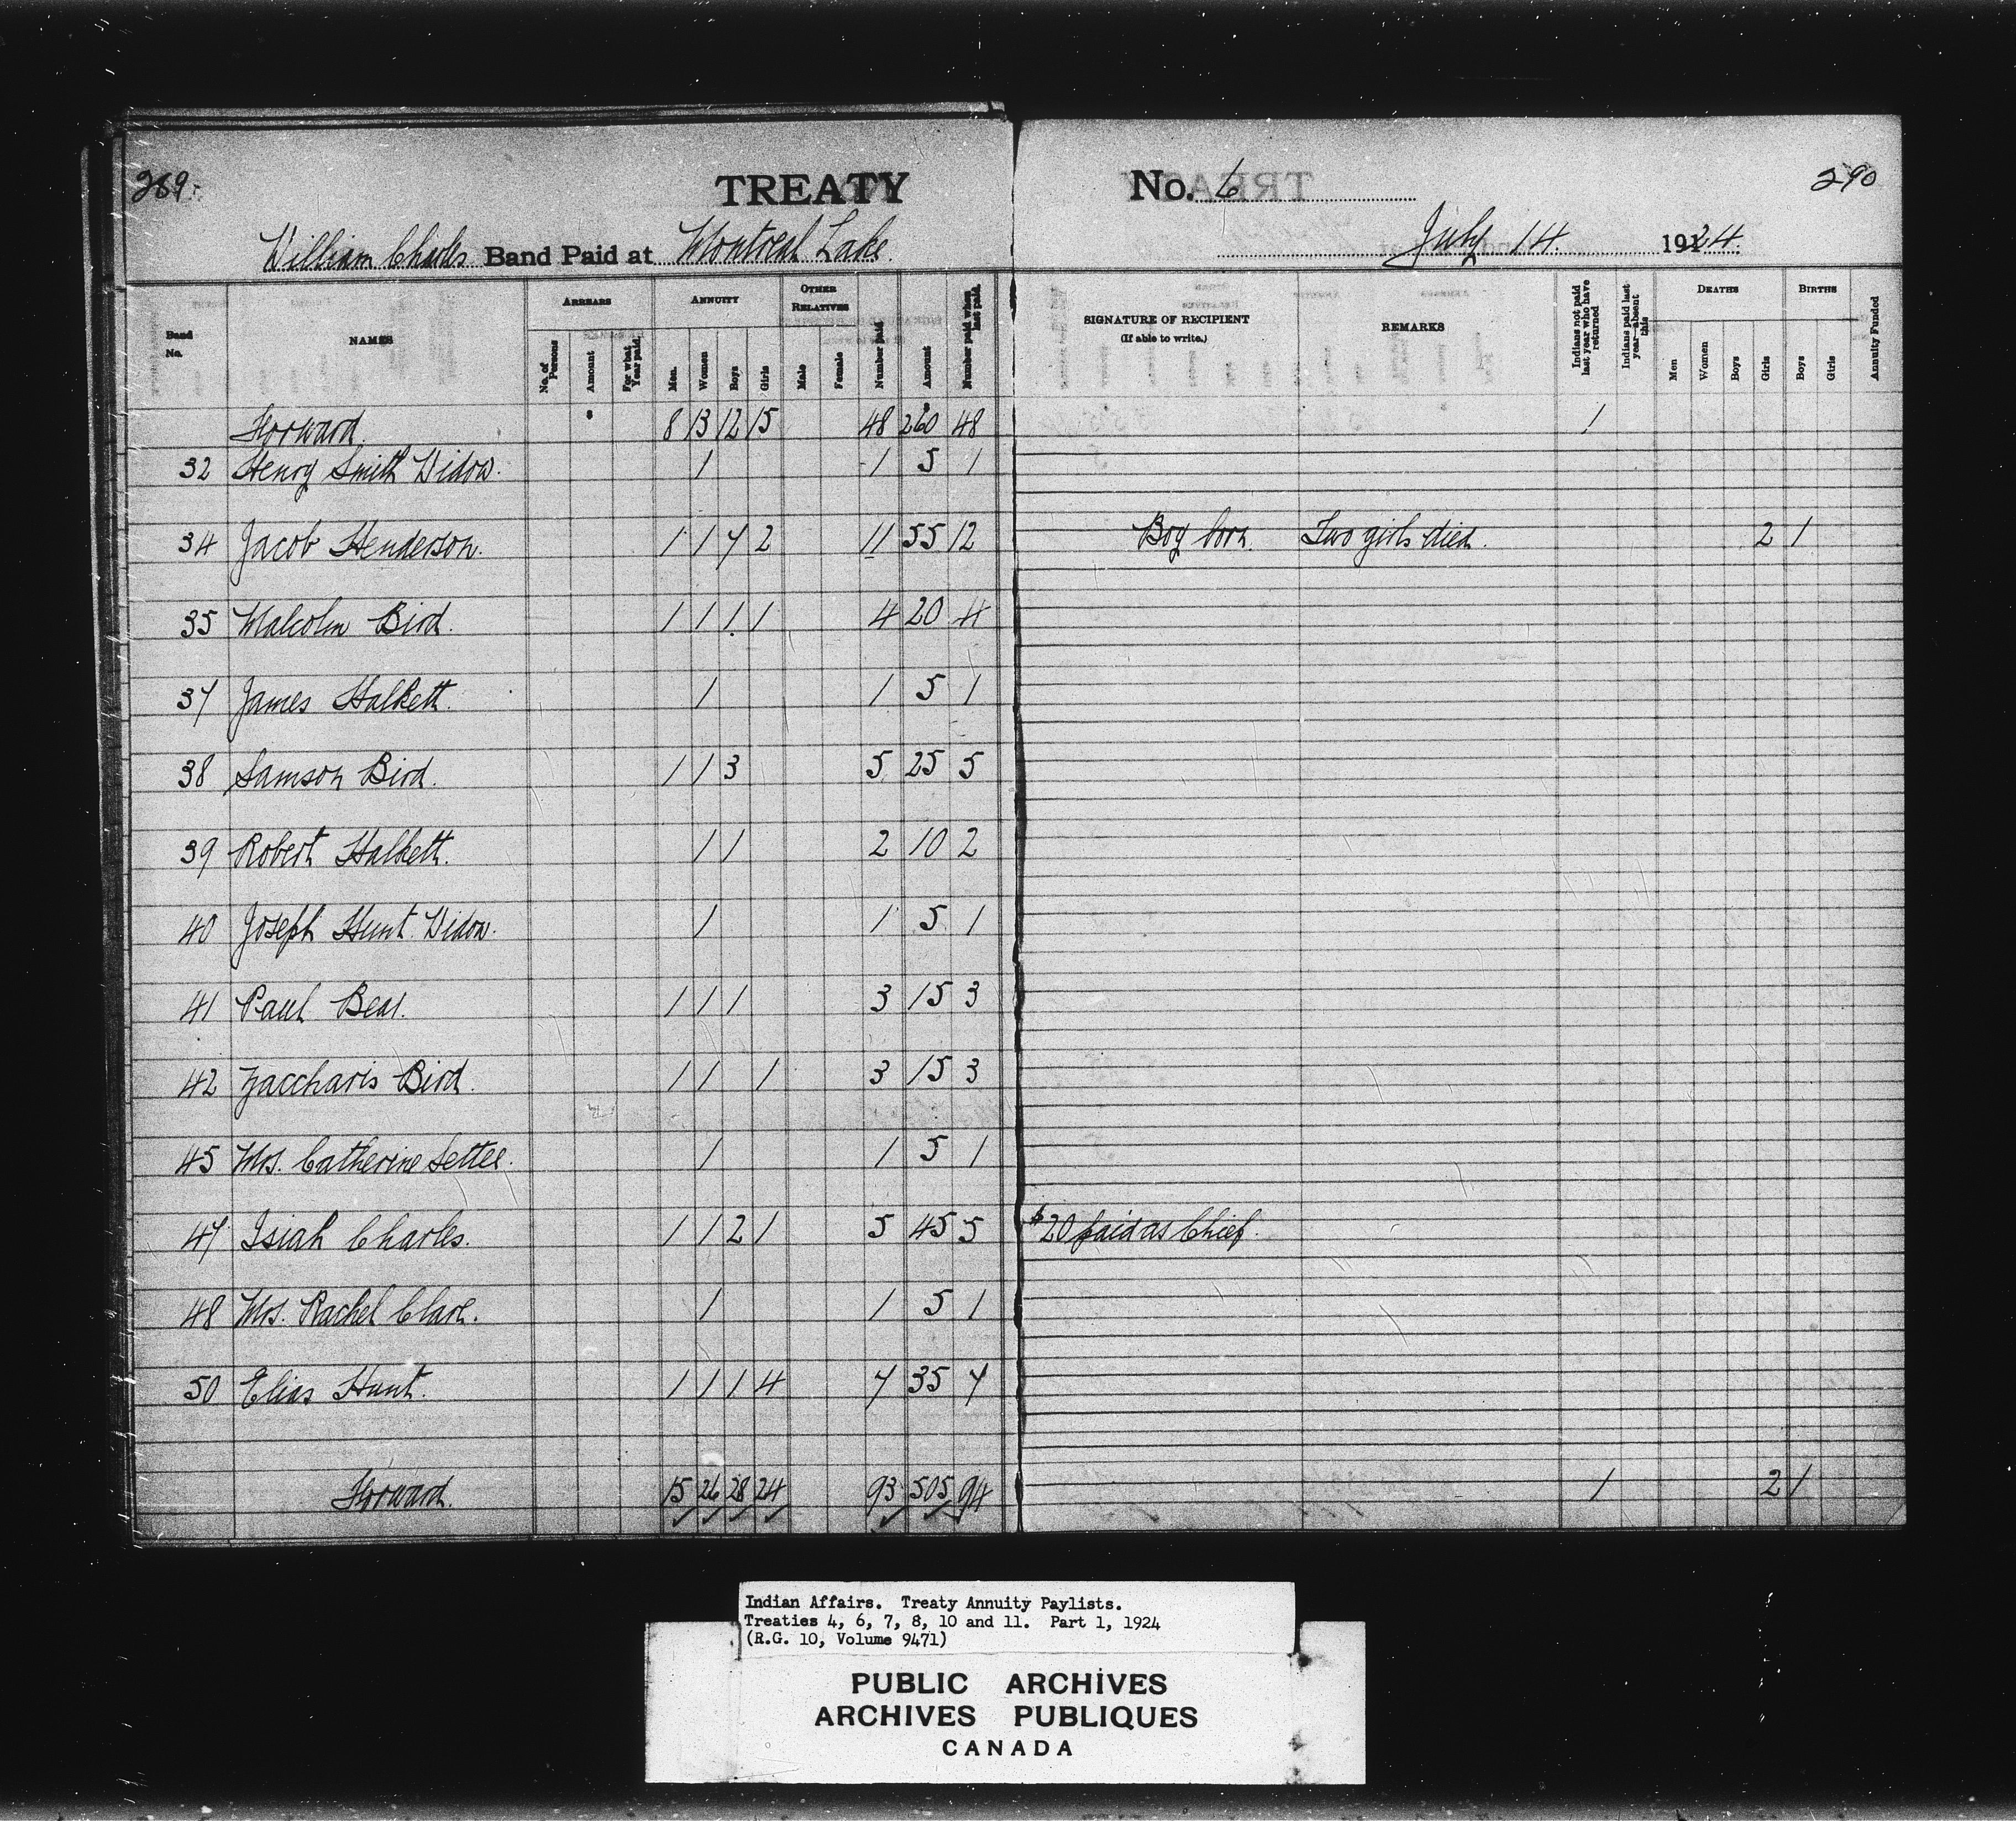 289.
TREATY No. 6
290
William Charles Band Paid at Montreal Lake. July 14. 1924.
Band No. NAMES ARREARS No. of Persons Amount For what Year paid. ANNUITY Men. Women Boys Girls OTHER RELATIVES Male Female Number paid Amount Number paid when last paid. SIGNATURE OF RECIPIENT (If able to write.) REMARKS Indians not paid last year who have returned Indians paid last year—absent this DEATHS Men Women Boys Girls BIRTHS Boys Girls Annuity Funded
Forward. 8 13 12 15 48 260 48 1
32 Henry Smith Widow. 1 1 5 1
34 Jacob Henderson. 1 1 7 2 11 55 12 Boy born. Two girls died. 2 1
35 Malcolm Bird. 1 1 1 1 4 20 4
37 James Halkett. 1 1 5 1
38 Samson Bird. 1 1 3 5 25 5
39 Robert Halkett. 1 1 2 10 2
40 Joseph Hunt Widow. 1 1 5 1
41 Paul Bear. 1 1 1 3 15 3
42 Zaccharis Bird. 1 1 1 3 15 3
45 Mrs. Catherine Settee. 1 1 5 1
47 Isiah Charles. 1 1 2 1 5 45 5 $20 paid as Chief.
48 Mrs. Rachel Clark. 1 1 5 1
50 Elias Hunt. 1 1 1 4 7 35 7
Forward. 15 26 28 24 93 505 94 1 2 1
Indian Affairs. Treaty Annuity Paylists.
Treaties 4, 6, 7, 8, 10 and 11. Part 1, 1924
(R.G. 10, Volume 9471)
PUBLIC ARCHIVES
ARCHIVES PUBLIQUES
CANADA